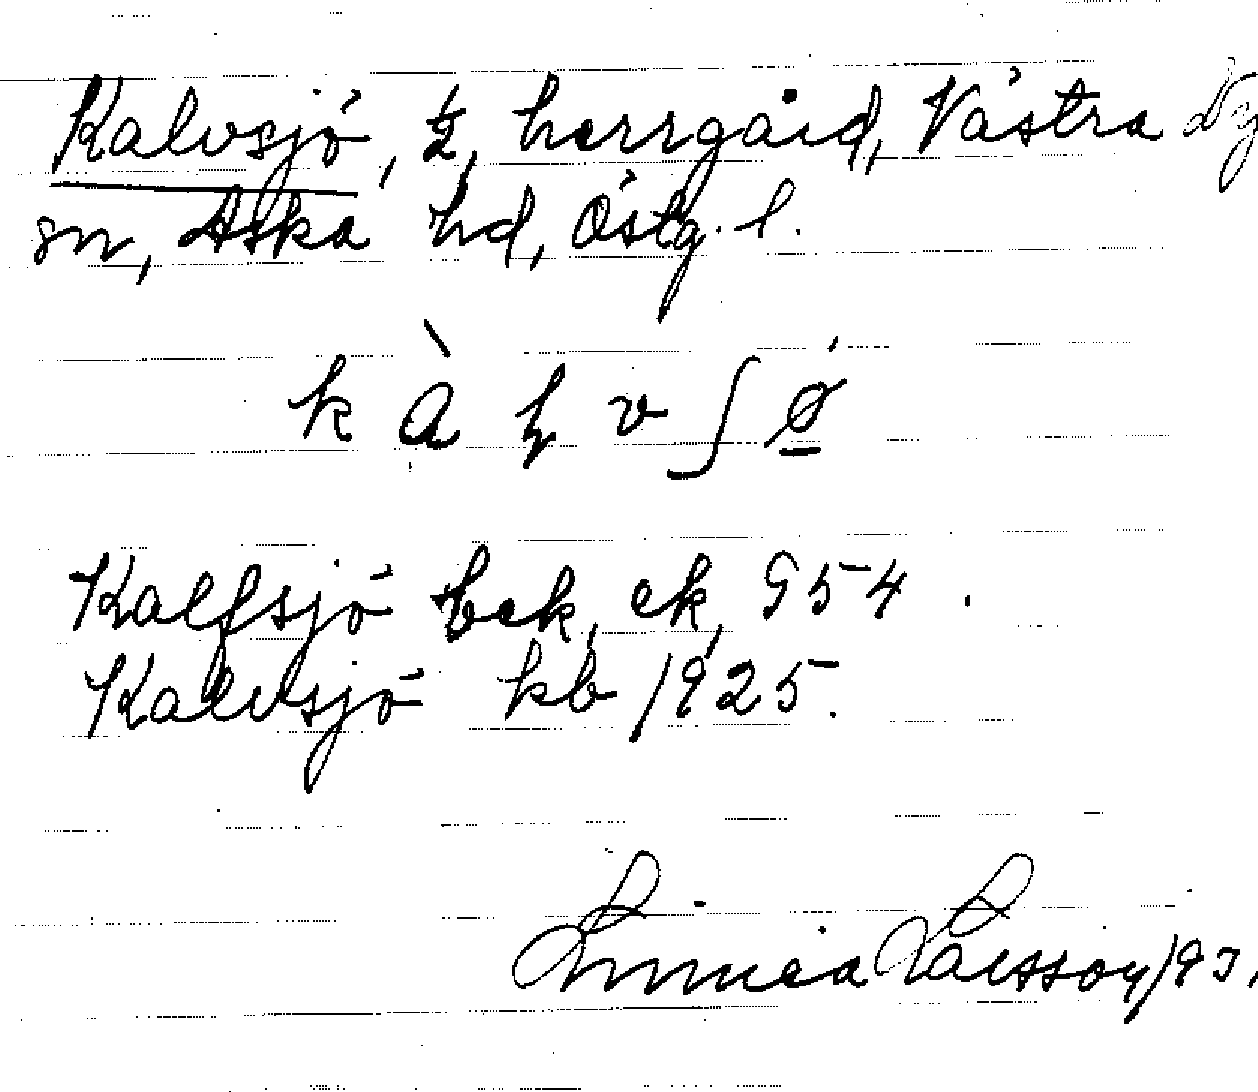 Kalvsjö, ½, herrgård, Västra Ny
sn, Aska hd, Östg. l.
k à ɬ v ʃ ǿ̲
Kalfsjö bek, ek, 954.
Kalvsjö kb 1925.
Linnea Larsson 193